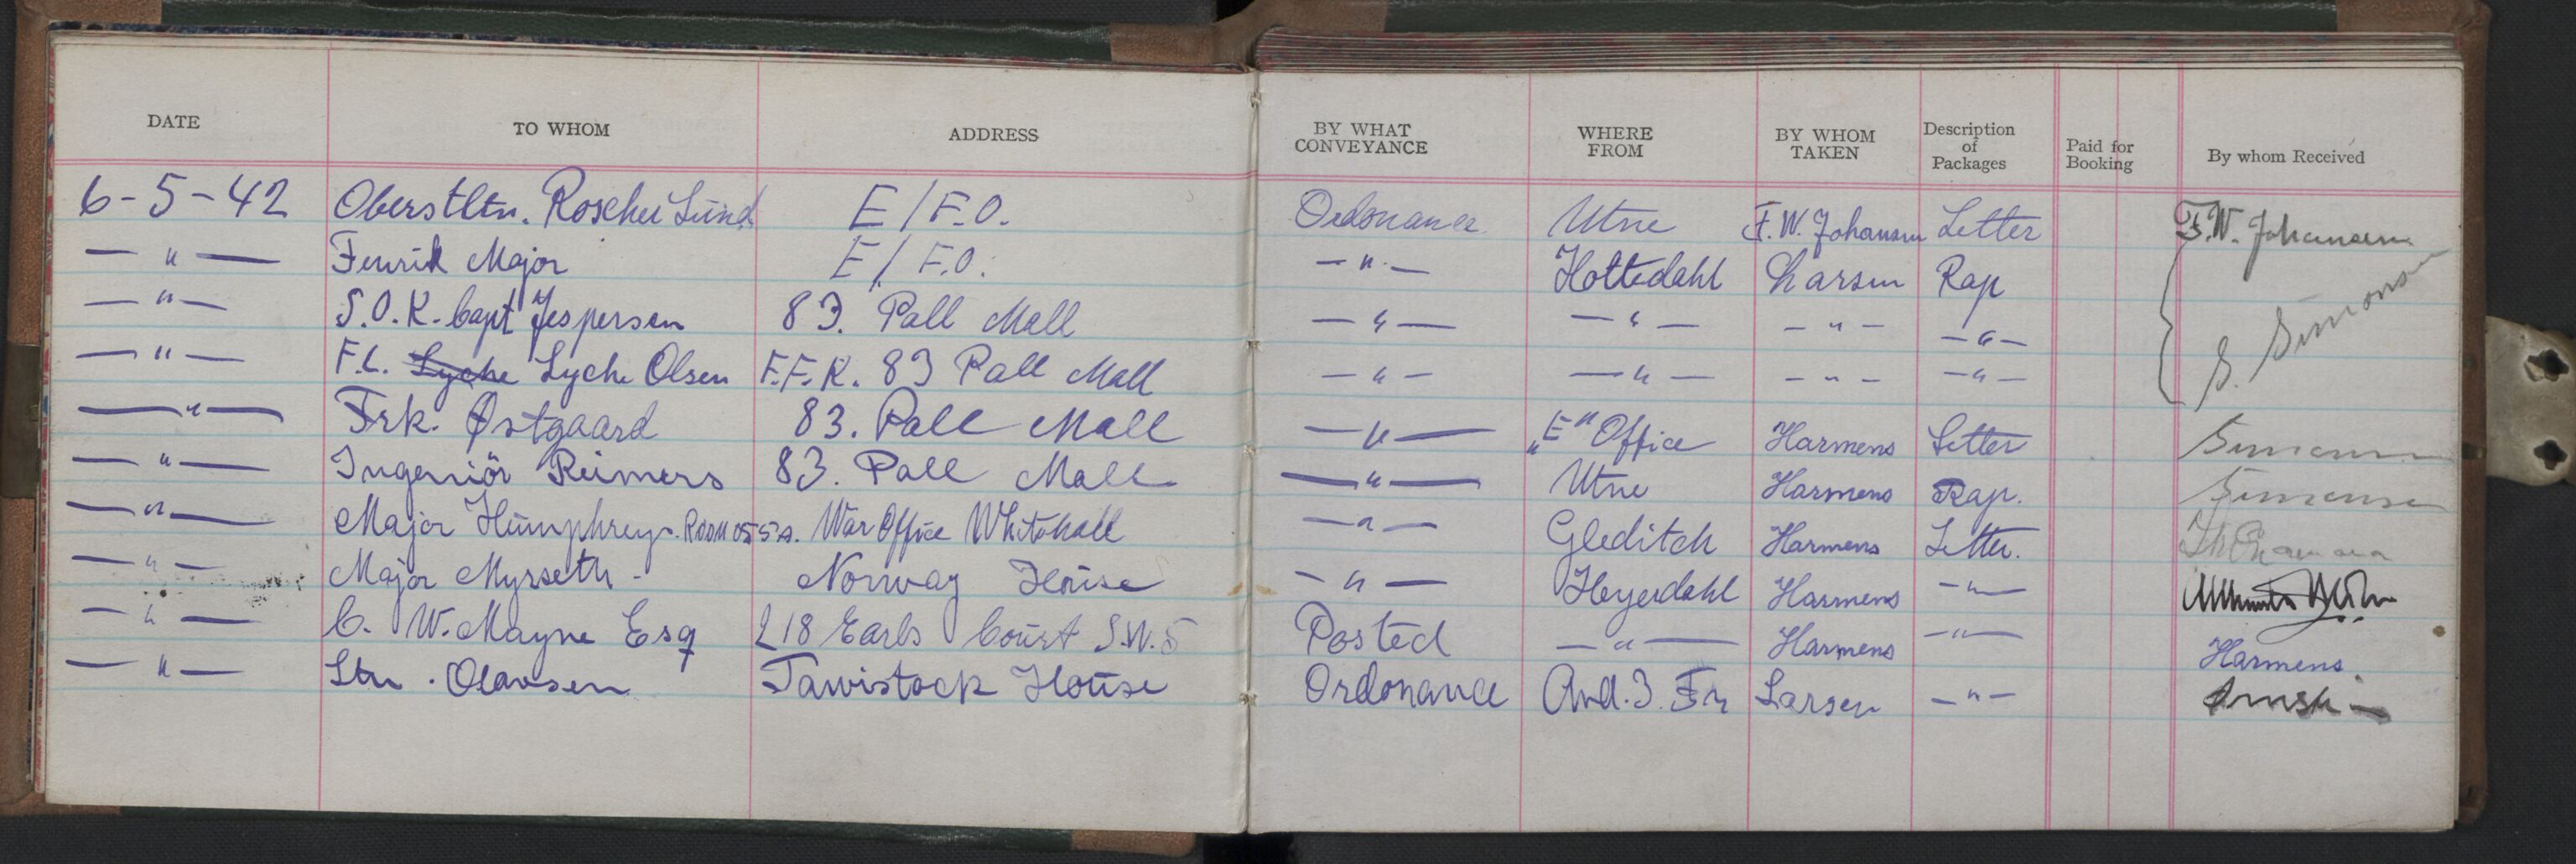 DATE TO WHOM ADDRESS BY WHAT CONVEYANCE WHERE FROM BY WHOM TAKEN Description of Packages Paid for Booking By whom Received
6-5-42 Oberstltn. Roscher Lund E/F.O. Ordonance Utne F.W. Johansen Letter F.W. Johansen
— " — Fenrik Major E/F.O. — " — Hottedahl Larsen Rap
— " — S.O.K. Capt Jespersen 83. Pall Mall — " — — " — — " — — " — S. Simonsen
— " — F.L. Lyche Lyche Olsen F.F.K. 83 Pall Mall — " — — " — — " — — " —
— " — Frk. Østgaard 83. Pall Mall — " — "E" Office Harmens Letter Simonsen
— " — Ingeniör Reimers 83. Pall Mall — " — Utne Harmens Rap. Simonsen
— " — Major Humphreys. Room 055a. War Office Whitehall — " — Gleditch Harmens Letter.
— " — Major Myrseth - Norway House — " — Heyerdahl Harmens — " —
— " — C. W. Mayne Esq 218 Earls Court S.W.5 Posted — " — Harmens — " — Harmens.
— " — Ltn. Olavsen Tavvistock House Ordonance Avd. 3. Fn Larsen — " —